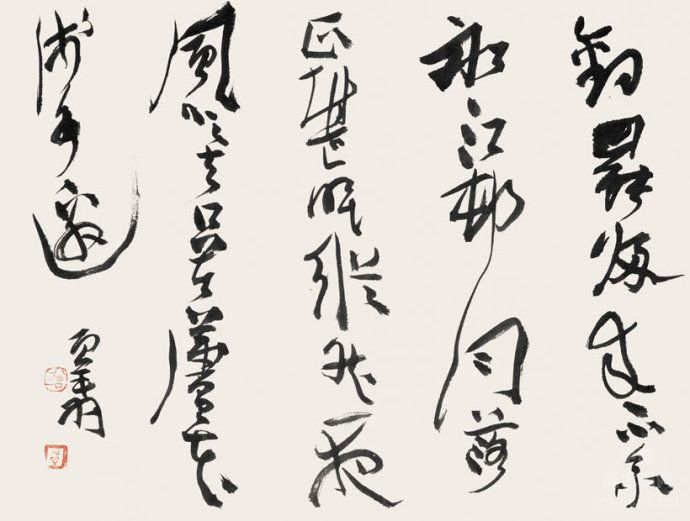 釣罷歸來不系
船江邨月落
正堪眠縱然一夜
風吹去只在蘆花
淺水邊
翁